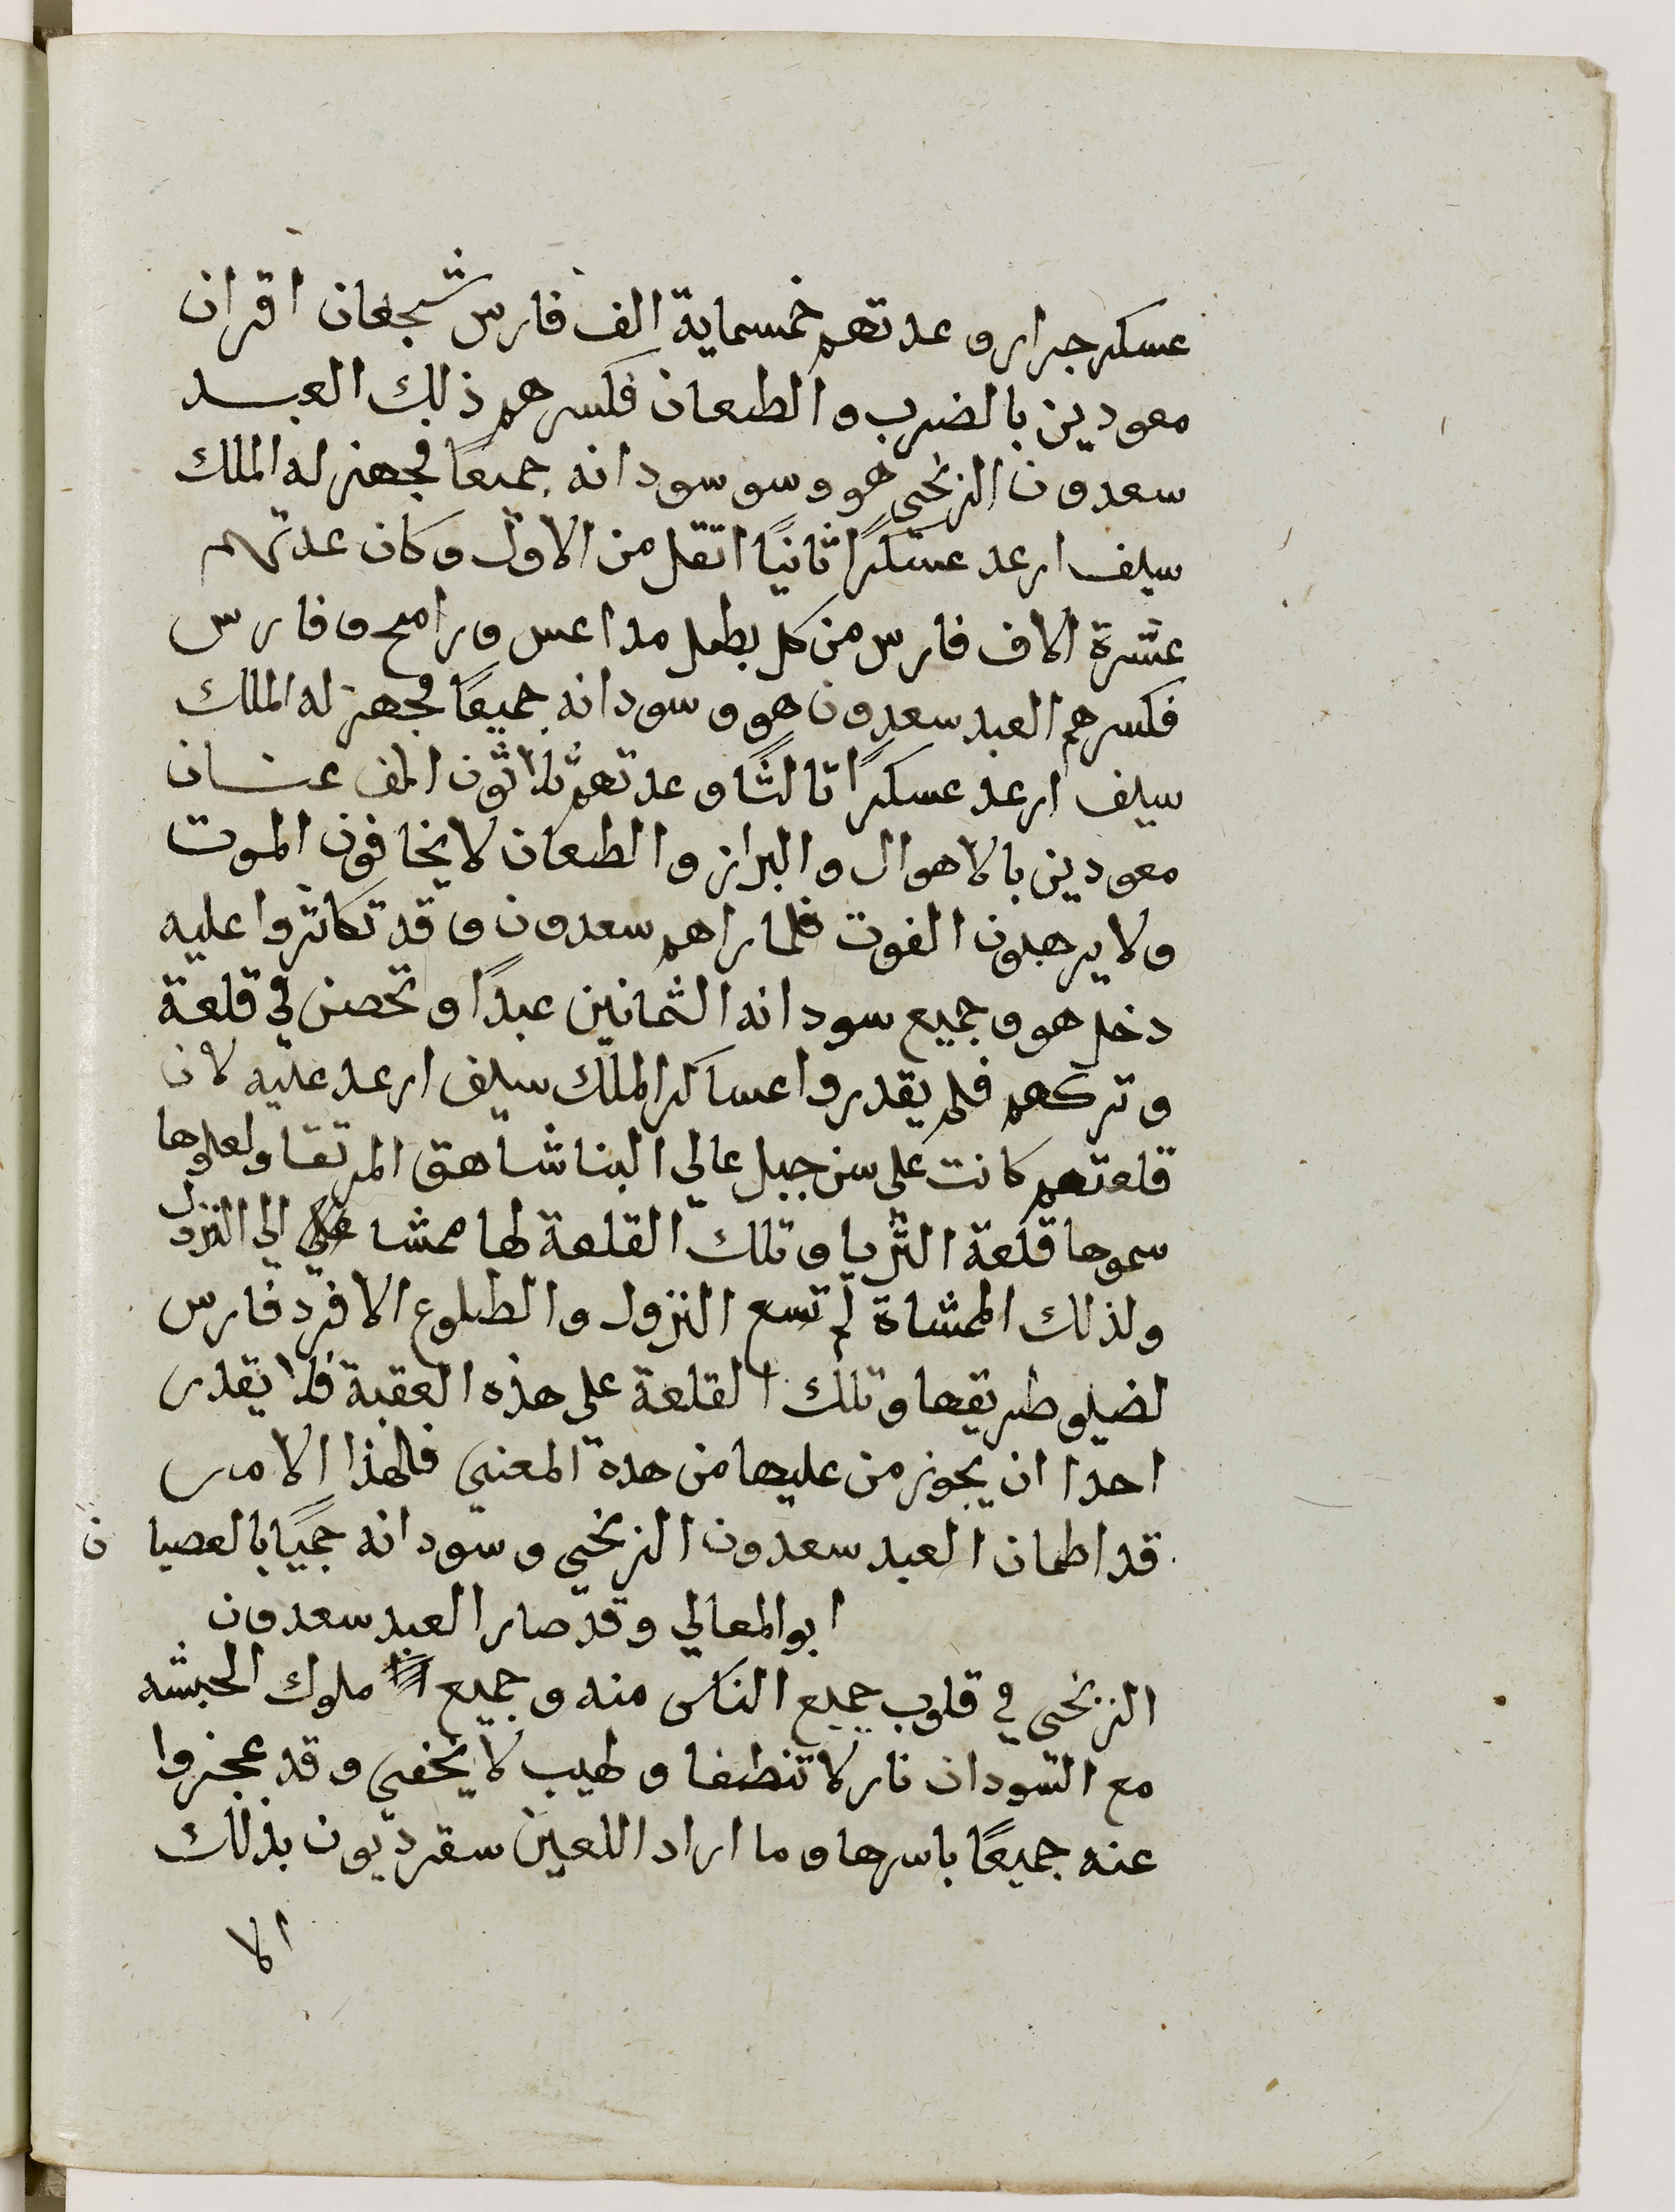 عسكر جرار وعدتهم خمسماية الف فارس شجعان اقران
معودين بالضرب والطعان فكسرهم ذلك العبد
سعدون الزنجي هو وسو سودانه جميعًا فجهز له الملك
سيف ارعد عسكرًا ثانيًا اتقل من الاول وكان عدتهم
عشرة الاف فارس من كل بطل مداعس ورامح وفارس
فكسرهم العبد سعدون هو وسودانه جميعًا فجهز له الملك
سيف ارعد عسكرًا ثالثًا وعدتهم ثلاثون الف عنان
معودين بالاهوال والبراز والطعان لا يخافون الموت
ولا يرهبون الفوت فلما راهم سعدون وقد تكاثروا عليه
دخل هو وجميع سودانه الثمانين عبدًا وتحصن في قلعة
وتركهم فلم يقدروا عساكر الملك سيف ارعد عليه لان
قلعتهم كانت على سن جبل عالي البنا شاهق المرتقا ولعلوها
سموها قلعة الثريا وتلك القلعة لها ممشا الي النزول
ولذلك الممشاة لم تسع النزول والطلوع الا فرد فارس
لضيق طريقها وتلك القلعة على هذه العقبة فلا يقدر
احدا ان يجوز من عليها من هدة المعني فلهذا الامر
قد اطمان العبد سعدون الزنجي وسودانه جميًا بالعصيان
ابو المعالي وقد صار العبد سعدون
الزنجي في قلوب جميع الناس منه وجميع ملوك الحبشه
مع السودان نار لا تنطفا ولهيب لا يخفي وقد عجزوا
عنه جميعًا باسرها وما اراد اللعين سقرديون بذلك
الا